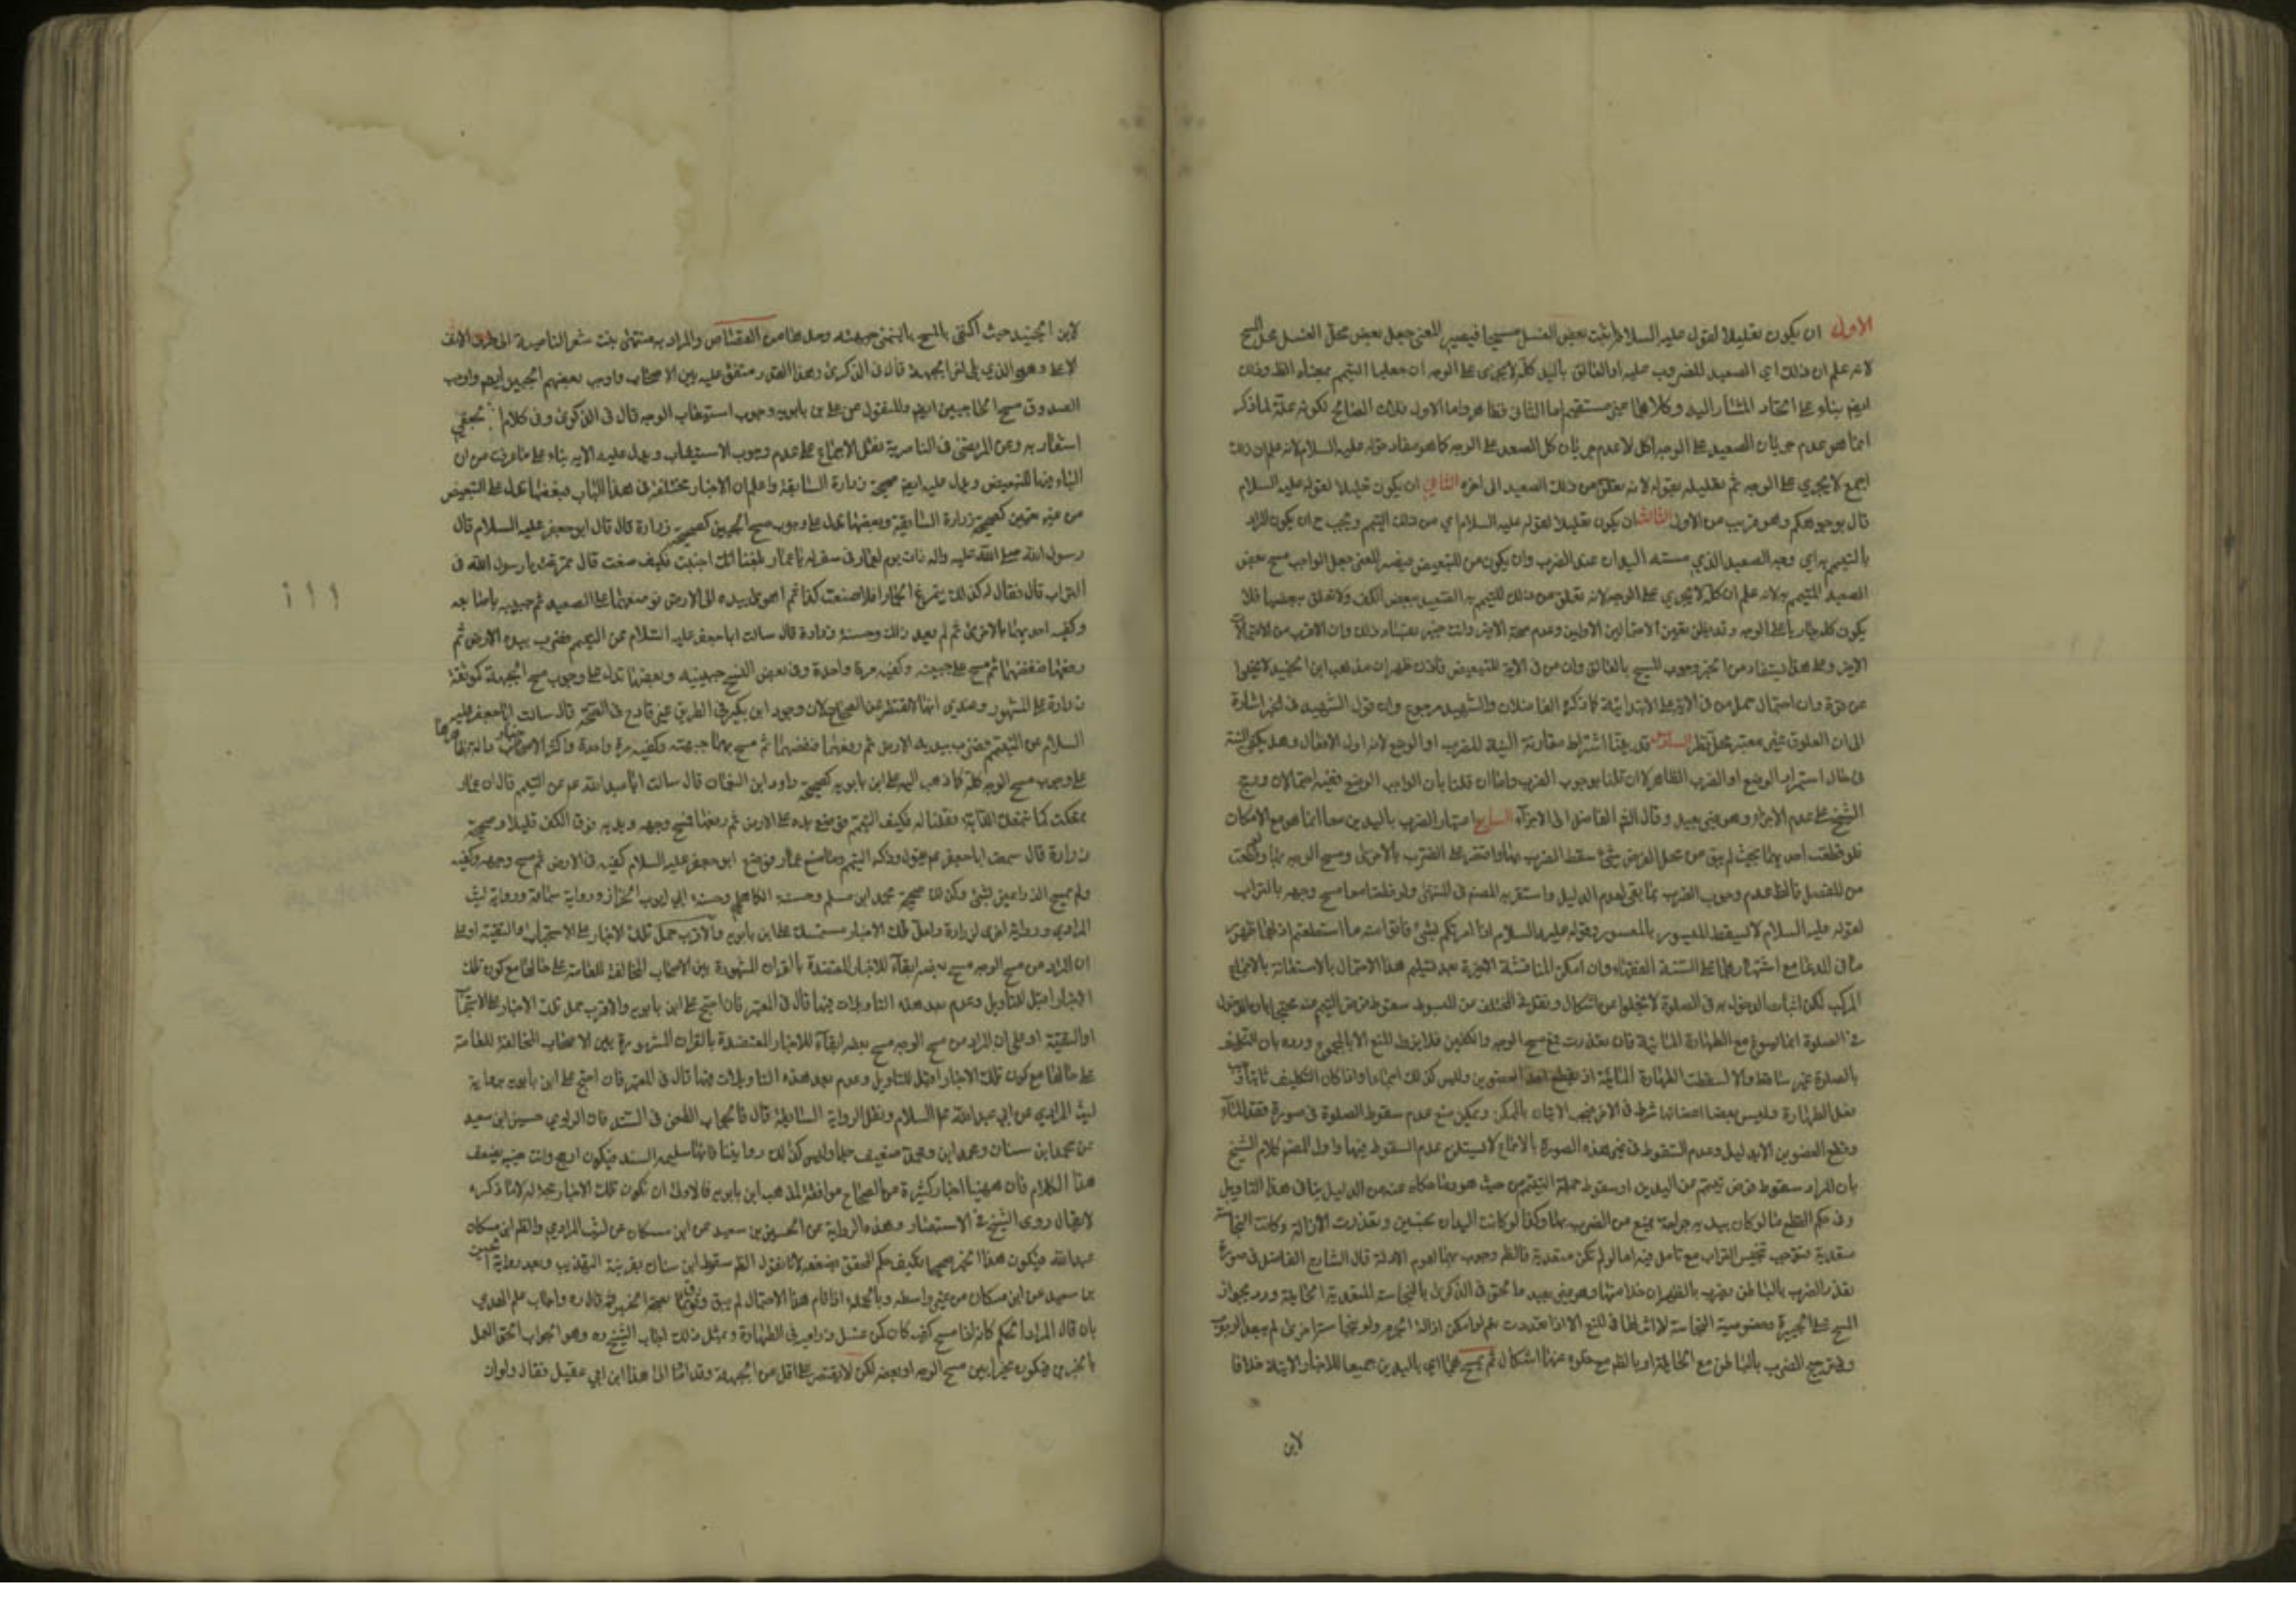 الاول ان يكون تعليلا لقوله عليه السلام اثبت بعض الغسل مسحا فيصير المعنى جعل بعض محل الغسل محل المسح
لانه علم ان ذلك اي الصعيد المضروب عليه او العالق باليد كله لا يجري على الوجه ان جعلنا التيمم بمعناه الظ وذلك
ايضا بناء على اتحاد المشار اليه وكلاهما غير مستقيم اما الثاني فظاهر واما الاول فلان الصالح لكونه علة لما ذكر
انما هو عدم جريان الصعيد على الوجه اكل لا عدم جريان كل الصعيد على الوجه كما هو مفاد قوله عليه السلام لانه علم ان ذلك
اجمع لا يجري على الوجه ثم تعليله بقوله لانه يعلق من ذلك الصعيد الى اخره الثاني ان يكون تعليلا لقوله عليه السلام
قال بوجوهكم وهو قريب من الاول الثالث ان يكون تعليلا لقوله عليه السلام اي من ذلك التيمم ويجب ح ان يكون المراد
بالتيمم به اي وجه الصعيد الذي مسته اليدان عند الضرب وان يكون من للتبعيض فيصير المعنى جعل الواجب مسح بعض
الصعيد المتيمم به لانه علم ان كله لا يجري على الوجه لانه تعلق من ذلك المتيمم به الصعيد ببعض الكف ولا تعلق ببعضها فلا
يكون كله جاريا على الوجه وقد يظن تعين الاحتمالين الاولين وعدم صحة الاخير وانت خبير بفساد ذلك وان الاقرب من الاحتمالات
الاخير وعلى هذا يستفاد من الخبر وجوب المسح بالعالق وان من في الاية للتبعيض فاذن ظهر ان مذهب ابن الجنيد لا يخلوا
عن قوة وان احتمال حمل من في الاية على الابتدائية كما ذكره الفاضلان والشهيد مرجوح وان قول الشهيد في الخبر اشارة
الى ان العلوق غير معتبر محل نظر السادس قد بينا اشتراط مقارنة النية للضرب او الوضع لانه اول الافعال وهل يكفي النية
في حال استمرار الوضع او الضرب الظاهر لا ان قلنا بوجوب الضرب واما ان قلنا بان الواجب الوضع ففيه احتمالان ورجح
الشيخ على عدم الاجزاء وهو غير بعيد وقال الشم الفاضل الى الاجزاء السابع اعتبار الضرب باليدين معا انما هو مع الامكان
فلو قطعت احديهما بحيث لم يبق من محل الفرض شئ سقط الضرب بها واقتصر على الضرب بالاخرى ومسح الوجه بها ولو قطعت
من المفصل فالظ عدم وجوب الضرب بما بقي لعدم الدليل واستقربه المصنف في المنتهى ولو قطعتا معا مسح وجهه بالتراب
لقوله عليه السلام لا يسقط الميسور بالمعسور وقوله عليه السلام اذا امرتكم بشئ فاتوا منه ما استطعتم
المركب لكن اثبات الدخول به في الصلوة لا يخلوا عن اشكال ونقل في المختلف عن المبسوط سقوط فرض التيمم عنه محتجا بان الدخول
في الصلوة انما يسوغ مع الطهارة المائية فان تعذرت فمع مسح الوجه والكفين فلا يزيل المنع الا بالمجموع ورده بان التكليف
بالصلوة غير ساقط والا لسقطت الطهارة المائية اذ بقطع احد العضوين وليس كذلك اجماعا واذا كان التكليف ثابتا وجب
فعل الطهارة وليس بعض اعضائها شرطا في الاخر فيجب الاتيان بالممكن ويمكن منع عدم سقوط الصلوة في صورة فقد الماء
وقطع العضوين الا بدليل وعدم السقوط في غير هذه الصورة بالاجماع لا يستلزم عدم السقوط فيها واول المصنف كلام الشيخ
بان المراد سقوط فرض تيمم عن اليدين او سقوط جملة التيمم من حيث هو وما حكاه عنه من الدليل ينافي هذا التاويل
وفي حكم القطع ما لو كان بيديه جراحة يمنع من الضرب بها وكذا لو كانت اليدان نجستين وتعذرت الازالة وكانت النجاسة
متعدية فتوجب تنجيس التراب مع تامل فيه اما لو لم تكن متعدية فالظ وجوب بهما لعموم الادلة قال الشارح الفاضل في صورة
تعذر الضرب بالباطن يضرب بالظهران خلا منها وهو غير بعيد والحق في الذكرى بالنجاسة المتعدية الحائلة ورد بجواز
المسح على الجبيرة وخصوصية النجاسة لا اثر لها في المنع الا اذا تعددت نعم لو امكن ازالة الجرم ولو بنجاسة اخرى لم يبعد الوجوب
وفي ترجيح الضرب بالباطن مع الحائل او بالظهر مع خلوه عنها اشكال ثم يمسح بهما اي باليدين جميعا للاخبار الاتية خلافا
لابن
لابن الجنيد حيث اكتفى بالمسح باليمنى جبهته وحدها من القصاص والمراد به منتهى نبت شعر الناصية الى طرف الانف
الاعلى وهو الذي يلي اخر الجبهة قال في الذكرى وهذا القدر متفق عليه بين الاصحاب واوجب بعضهم الجبين ايضا واوجب
الصدوق مسح الحاجبين ايضا والمنقول عن علي بن بابويه وجوب استيعاب الوجه قال في الذكرى وفي كلام الجعفي
اشعار به وعن المرتضى في الناصرية نقل الاجماع على عدم وجوب الاستيعاب ويدل عليه الاية بناء على ما عرفت من ان
الباء فيها للتبعيض ويدل عليه ايضا صحيحة زرارة السابقة واعلم ان الاخبار مختلفة في هذا الباب فبعضها يدل على التبعيض
من غير تعيين كصحيحة زرارة السابقة وبعضها يدل على وجوب مسح الجبين كصحيحة زرارة قال قال ابو جعفر عليه السلام قال
رسول الله صلى الله عليه واله ذات يوم لعمار في سفر له يا عمار بلغنا انك اجنبت فكيف صنعت قال تمرغت يا رسول الله في
التراب قال فقال له كذلك يتمرغ الحمار افلا صنعت كذا ثم اهوى بيديه الى الارض فوضعهما على الصعيد ثم مسح جبينيه باصابعه
وكفيه احديهما بالاخرى ثم لم يعد ذلك وحسنة زرارة قال سالت ابا جعفر عليه السلام عن التيمم فضرب بيده الارض ثم
رفعها فنفضها ثم مسح على جبينه وكفيه مرة واحدة وفي بعض النسخ جبينيه وبعضها تدل على وجوب مسح الجبهة كموثقة
زرارة على المشهور وعندي انها لا تقصر عن الصحاح لان وجود ابن بكير في الطريق غير قادح في الصحة قال سالت ابا جعفر عليه
السلام عن التيمم فضرب بيديه الارض ثم رفعهما فنفضهما ثم مسح بهما جبهته وكفيه مرة واحدة واكثر الاخبار
على وجوب مسح الوجه كله كما ذهب اليه علي ابن بابويه كصحيحة داود ابن النعمان قال سالت ابا عبد الله عم عن التيمم قال ان عمار
تمعكت كما تتمعك الدابة فقلنا له فكيف التيمم فوضع يده على الارض ثم رفعها فمسح وجهه ويديه فوق الكف قليلا وصحيحة
زرارة قال سمعت ابا جعفر عم يقول وذكر التيمم وما صنع عمار فوضع ابو جعفر عليه السلام كفيه في الارض ثم مسح وجهه وكفيه
ولم يمسح الذراعين بشئ وكذلك صحيحة محمد ابن مسلم وحسنة الكاهلي وحسنة ابي ايوب الخزاز ورواية سماعة ورواية ليث
المرادي ورواية اخرى لزرارة ولعل تلك الاخبار مستمسك علي ابن بابويه والاقرب حمل تلك الاخبار على الاستحباب او التقية او على
ان المراد من مسح الوجه مسح بعضه ابقاء للاخبار المعتضدة بالقران المشهورة بين الاصحاب المخالفة للعامة على حالها مع كون تلك
الاخبار اقبل للتاويل وعدم بعد هذه التاويلات فيها قال في المعتبر فان احتج علي ابن بابويه والاقرب حمل تلك الاخبار على الاستحباب
او التقية او على ان المراد من مسح الوجه مسح بعضه ابقاء للاخبار المعتضدة بالقران المشهورة بين الاصحاب المخالفة للعامة
على حالها مع كون تلك الاخبار اقبل للتاويل وعدم بعد هذه التاويلات فيها قال في المعتبر فان احتج علي ابن بابويه برواية
ليث المرادي عن ابي عبد الله عليه السلام ونقل الرواية السابقة قال فالجواب الطعن في السند فان الراوي حسين ابن سعيد
عن محمد ابن سنان ومحمد ابن سنان ضعيف جدا وليس كذلك روايتنا فانها سليمة السند فيكون ارجح وانت خبير بضعف
هذا الكلام فان ههنا اخبار كثيرة من الصحاح موافقة لمذهب ابن بابويه فالاولى ان تكون تلك الاخبار حجة له لا ما ذكره
لا يقال روى الشيخ في الاستبصار وهذه الرواية عن الحسين بن سعيد عن ابن مسكان عن ليث المرادي والظ ابن مسكان
عبد الله فيكون هذا الخبر صحيحا فكيف حكم المحقق بضعفه لانا نقول الظ سقوط ابن سنان بقرينة التهذيب وبعد رواية الحسين
بن سعيد عن ابن مسكان من غير واسطة وبالجملة اذا قام هذا الاحتمال لم يبق وثوق بصحة الخبر واجاب علم الهدى
بان قال المراد الحكم كانه اذا مسح كفيه كان كمن غسل ذراعيه في الطهارة وبمثل ذلك اجاب الشيخ ره وهو الجواب الحق العمل
بالخبرين فيكون مخيرا بين مسح الوجه او بعضه لكن لا يقتصر على اقل من الجبهة وقد اشار الى هذا ابن ابي عقيل فقال ولو ان